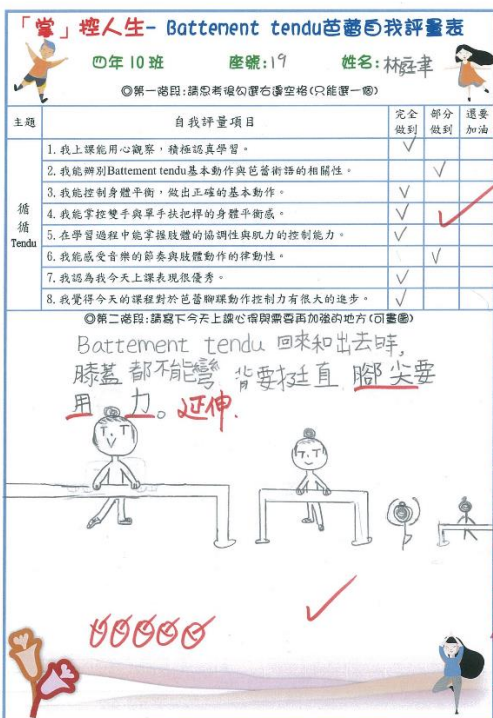 「掌」控人生- Battement tendu芭蕾自我評量表
四年10班 座號:19 姓名:林莛聿
◎第一階段:請思考後勾選右邊空格(只能選一個)
主題 自我評量項目 完全做到 部分做到 還要加油
循循Tendu
1.我上課能用心觀察,積極認真學習。 ✓
2.我能辨別Battement tendu基本動作與芭蕾術語的相關性。 ✓
3.我能控制身體平衡,做出正確的基本動作。 ✓
4.我能掌控雙手與單手扶把桿的身體平衡感。 ✓
5.在學習過程中能掌握肢體的協調性與肌力的控制能力。 ✓
6.我能感受音樂的節奏與肢體動作的律動性。 ✓
7.我認為我今天上課表現很優秀。 ✓
8.我覺得今天的課程對於芭蕾腳踝動作控制力有很大的進步。 ✓
◎第二階段:請寫下今天上課心得與需要再加強的地方(可畫圖)
Battement tendu 回來和出去時,
膝蓋都不能彎 背要挺直 腳尖要
用力。延伸.